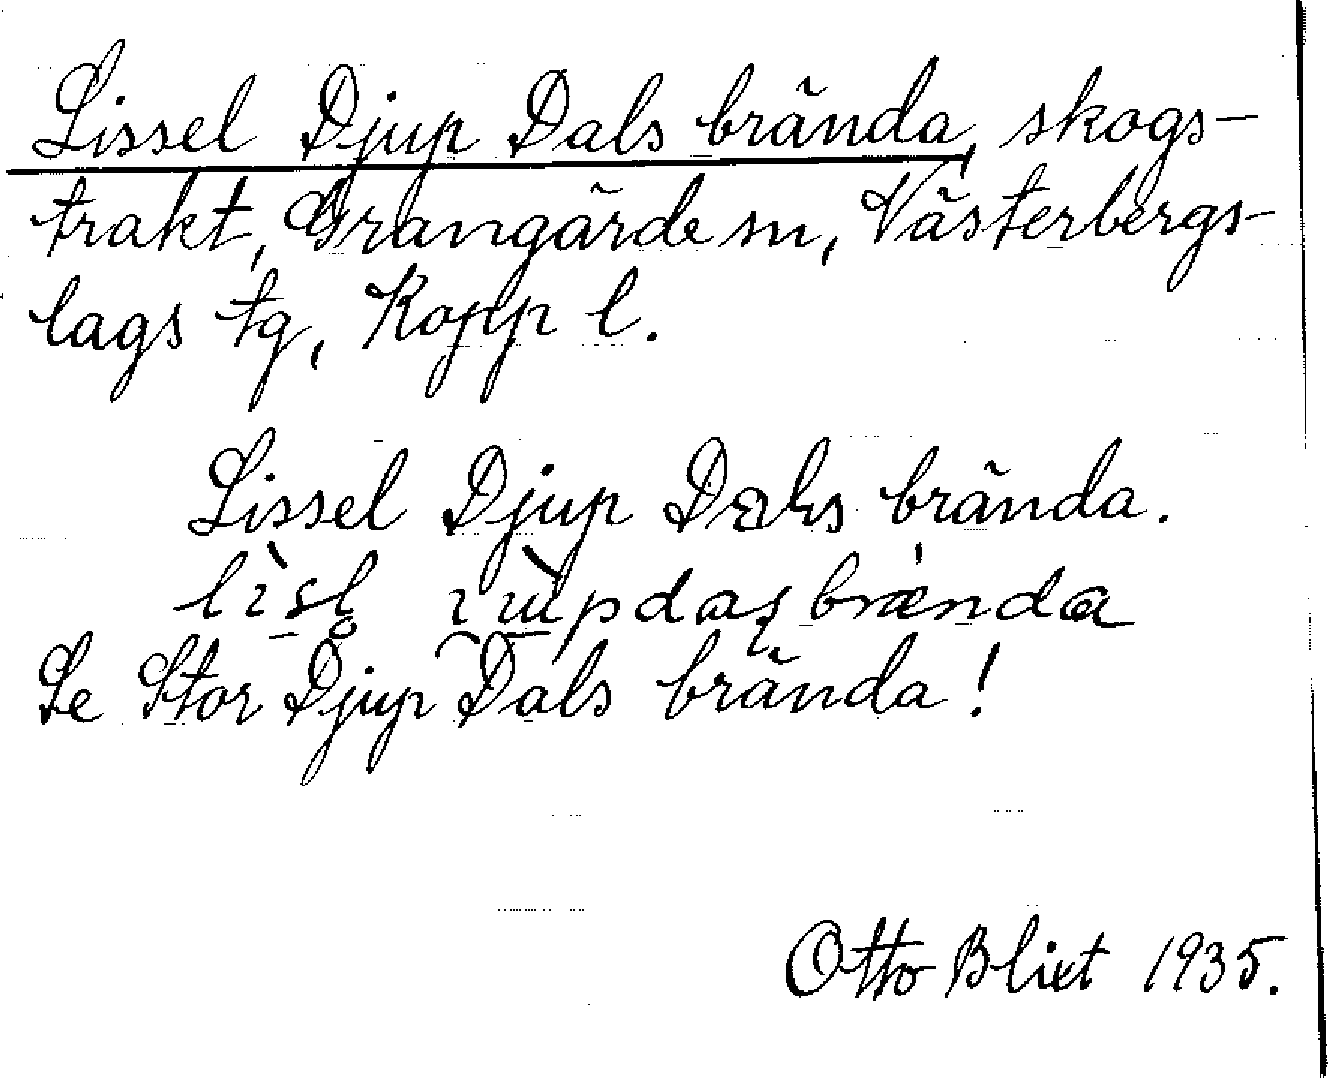 Lissel Djup Dals brända, skogs-
trakt, Grangärde sn, Västerbergs-
lags tg, Kopp l.
Lissel Djup Dals brända.
Se Stor Djup Dals brända!
Otto Blixt 1935.